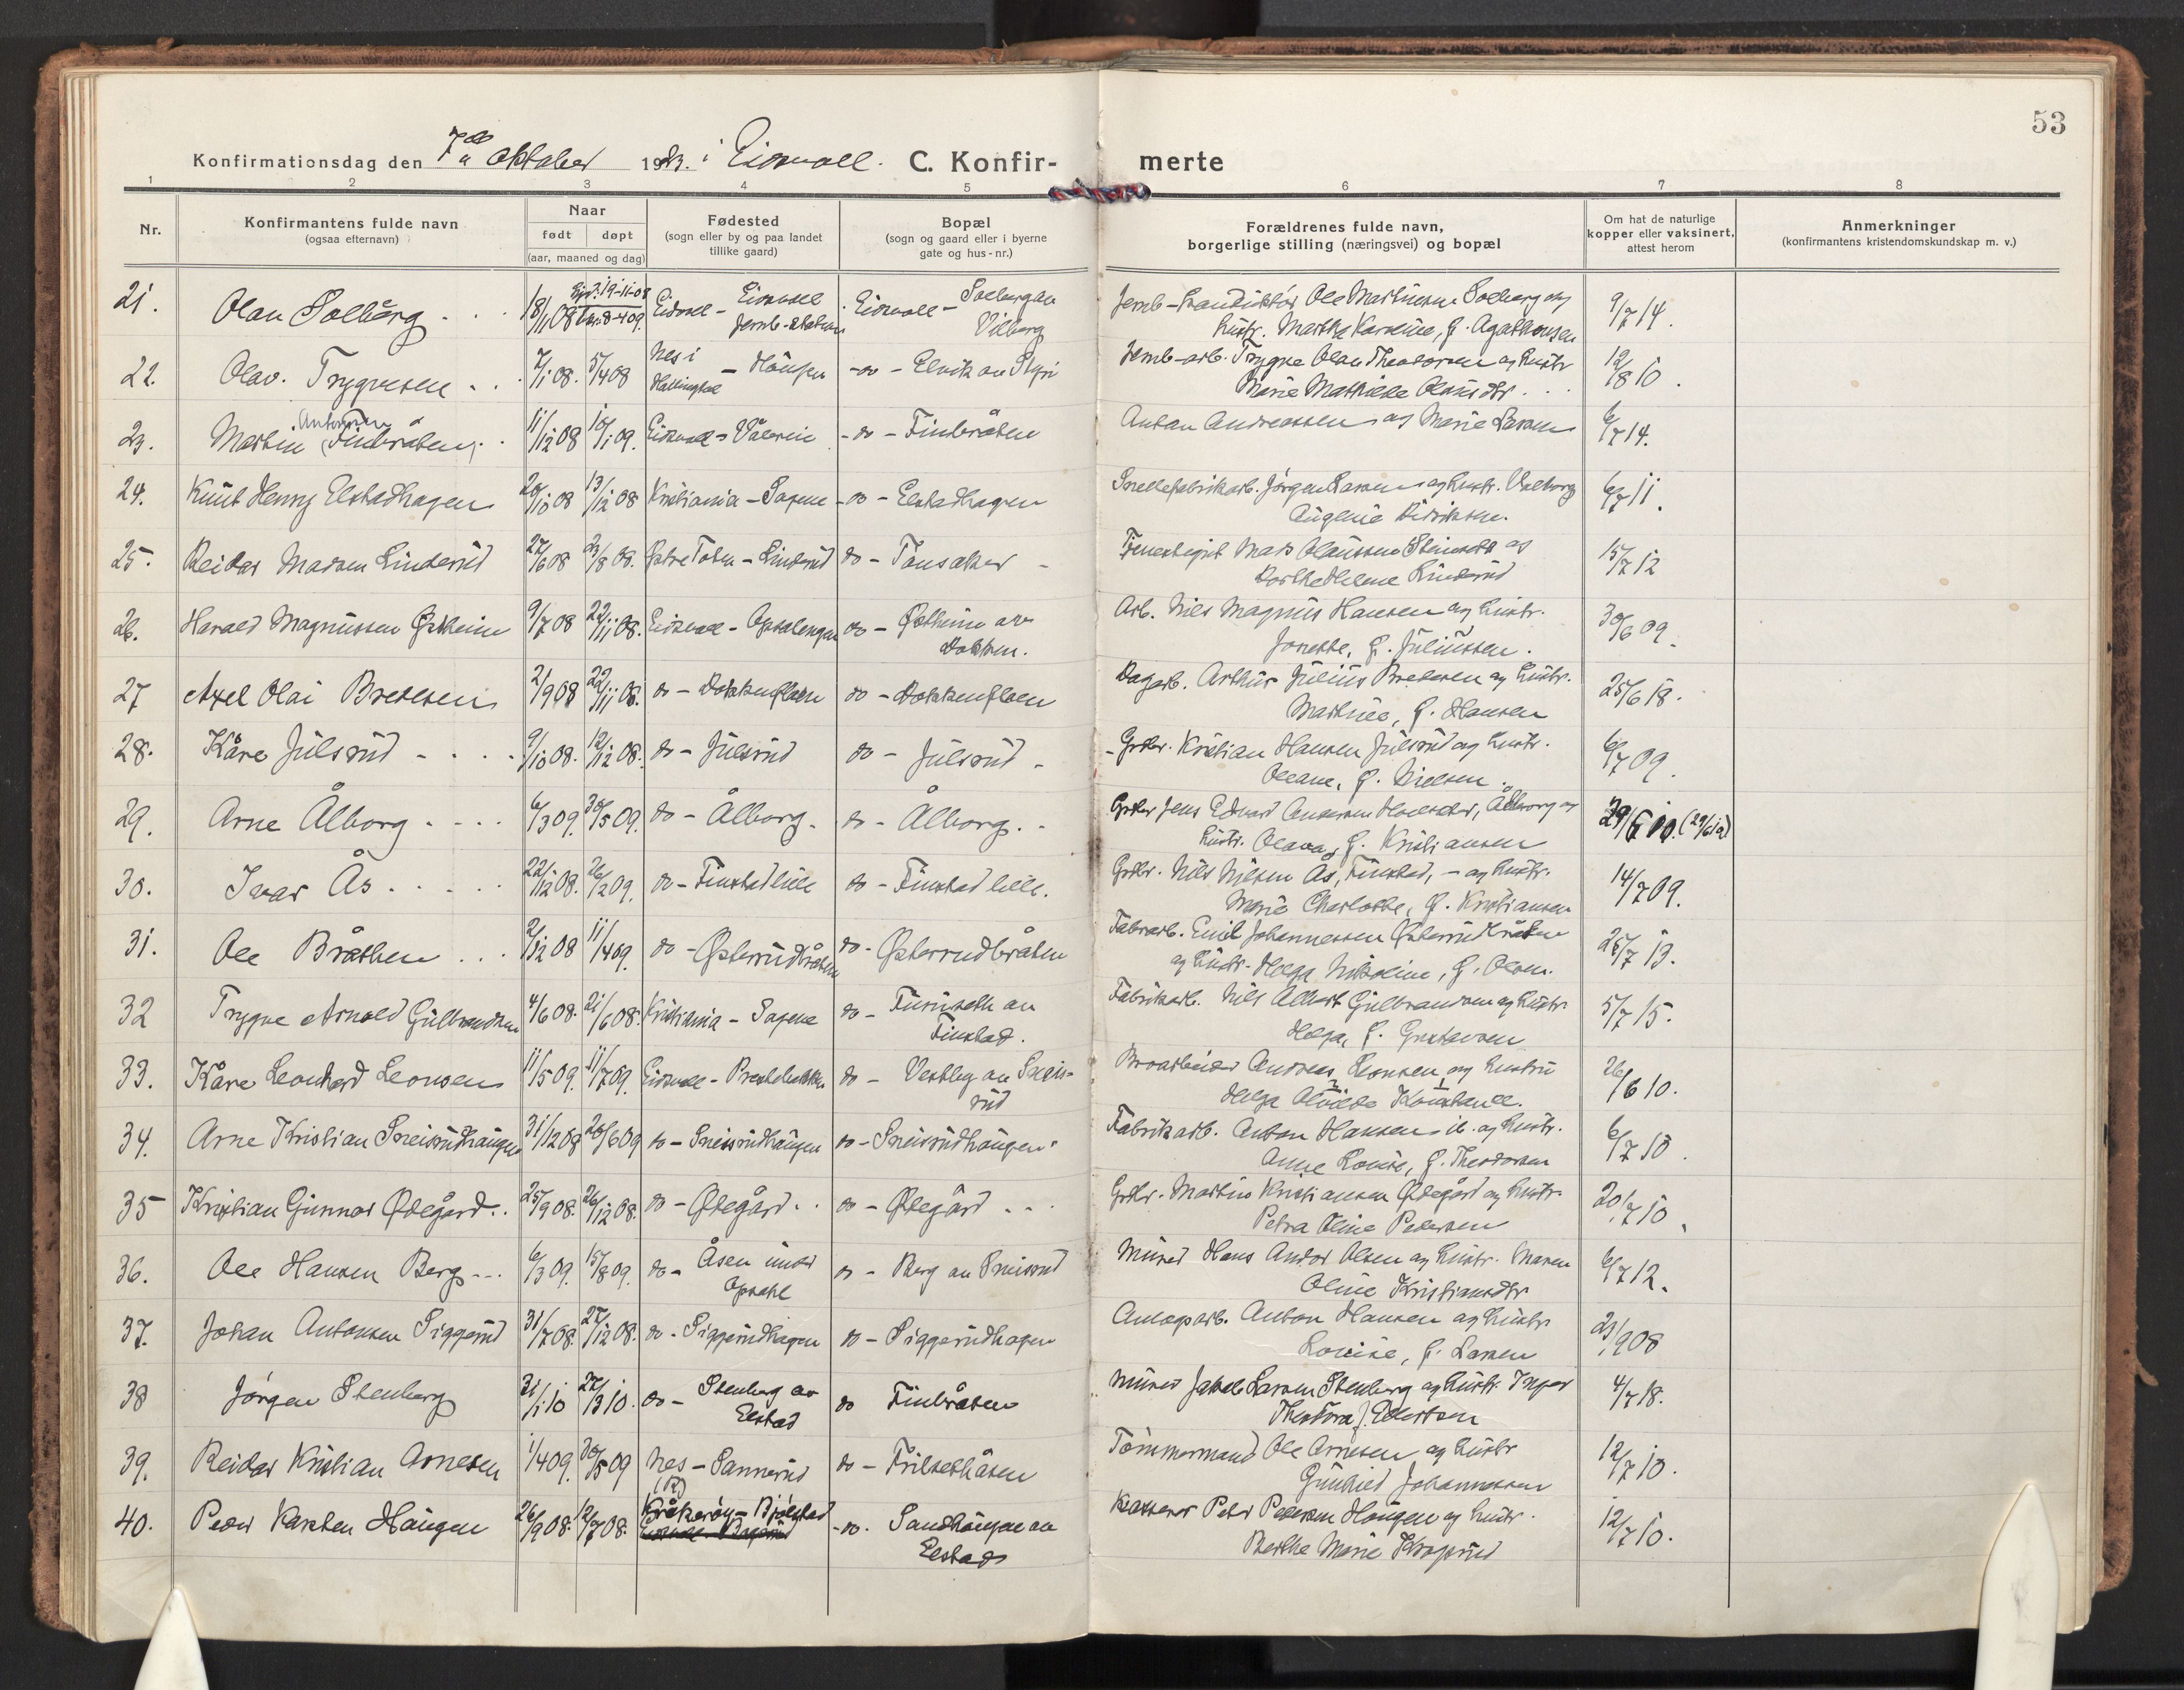 53
Konfirmationsdag den 7de oktober 1923. i Eidsvoll. C. Konfirmerte
1 2 3 4 5 6 7 8
Nr.
Konfirmantens fulde navn
(ogsaa efternavn)
Naar
født døpt
(aar, maaned og dag)
Fødested
(sogn eller by og paa landet
tillike gaard)
Bopæl
(sogn og gaard eller i byerne
gate og hus-nr.)
Forældrenes fulde navn,
borgerlige stilling (næringsvei) og bopæl
Om hat de naturlige
kopper eller vaksinert,
attest herom
Anmerkninger
(konfirmantens kristendomskundskap m. v.)
21. Olav Solberg 18/11 08 Eidsvoll - Eidsvoll Jernb-station Eidsvoll - Solberg av Vilberg Ole Martinsen Solberg og 9/7 14.
hustr. Marthe Karoline, f. Agathonsen
22. Olav Trygvesen 7/1 08. 5/4 08 Nes i Hallingdal - Haugen -do- Elvik av Styri Jernb-arb. Trygve Olav Theodorsen og hustr 12/8 10.
Marie Mathilde Olausdtr.
23. Martin Antonsen (Finbråten) 11/12 08 10/1 09. Eidsvoll - -do- Finbråten Anton Andreassen og Marie Larsen 6/7 14.
24. Knut Henry Elstadhagen 20/10 08 13/12 08 Kristiania - Sagene -do- Elstadhagen Snellefabrikarb. Jørgen Larsen og hustr. Valborg 6/7 11.
Eugenie Didriksen.
25. Reidar Madsen Linderud 27/6 08 23/8 08. Østre Toten - Linderud do - Tønsaker Mads Olaussen og 15/7 12
Dorthe Helene Linderud
26. Harald Magnussen Østheim 9/7 08 22/11 08. Eidsvoll - Opsalengen do - Østheim av Dokken. Arb. Nils Magnus Hansen og hustr. 30/6 09.
Jonette, f. Juliussen.
27 Axel Olai Bredesen 2/9 08 22/11 08. do - Dokkenfloen do - Dokkenfloen Dagarb. Arthur Julius Bredesen og hustr. 25/6 18.
Mathilde, f. Hansen
28. Kåre Julsrud 9/10 08. 12/12 08. do - Julsrud do - Julsrud Grdbr. Kristian Hansen Julsrud og hustr. 6/7 09.
Oleane, f. Nielsen.
29. Arne Ålborg 6/3 09. 30/5 09. do - Ålborg do - Ålborg. Grdbr Jens Edvard Andersen Ålborg og 29/6 10. (29/6 10)
hustr. Olava, f. Kristiansen
30. Ivar Ås 22/12 08. 26/2 09. do - Finstad lille do - Finstad lille. Grdbr. Nils Nilsen Ås, Finstad, - og hustr. 14/7 09.
Marie Charlotte, f. Kristiansen
31. Ole Bråthen 2/12 08 11/4 09. do - Østerudbråten do - Østerudbråten Fabrarb. Emil Johannessen Østerudbråten 25/7 13.
og hustr. Helga Nikoline, f. Olsen.
32 Trygve Arnold Gulbrandsen 4/6 08. 21/6 08. Kristiania - Sagene do - Furuseth av Finstad. Fabrikarb. Nils Albert Gulbrandsen og hustr. 5/7 15.
Helga, f. Gustavsen
33. Kåre Leonhard Leonsen 11/5 09. 11/7 09. Eidsvoll - Prestebakken do - Vestby av Sneisrud Andreas Leonsen og hustru 26/6 10.
Helga Alvilde Konstance.
34. Arne Kristian Sneisrudhaugen 31/12 08 20/6 09 do - Sneisrudhaugen do - Sneisrudhaugen Fabrikarb. Anton Hansen ib. og hustr. 6/7 10.
Anne Louise, f. Theodorsen
35 Kristian Gunnar Ødegård 25/9 08. 26/12 08. do - Ødegård do - Ødegård Grdbr. Martin Kristiansen Ødegård og hustr. 20/7 10.
Petra Oline Pedersen
36. Ole Hansen Berg 6/3 09. 15/8 09. do - Åsen under Opsahl do - Berg av Sneisrud Murer Hans Andor Olsen og hustr. Maren 6/7 12.
Oline Kristiansdtr
37. Johan Antonsen Siggerud 31/7 08. 27/12 08. do - Siggerudhagen do - Siggerudhagen Anlægsarb. Anton Hansen og hustr 23/9 08
Louise, f. Larsen
38 Jørgen Stenberg 31/1 10 27/3 10. do - Stenberg av Elstad do Finbråten Murer Jakob Larsen Stenberg og hustr. Inger 4/7 18.
Theodora f. Edvartsen
39. Reidar Kristian Arnesen 1/4 09. 30/5 09 Nes - Sannerud (R) do - Trilsethåsen Tømmermand Ole Arnesen og hustr 12/7 10.
Gunhild Johannessen
40. Peder Karsten Haugen 26/9 08. 12/7 08. Kråkerøy - Bjølstad -do- Sandhaugen av Elstad Kasserer Peder Pedersen Haugen og hustr. 12/7 10.
Berthe Marie Kroprud